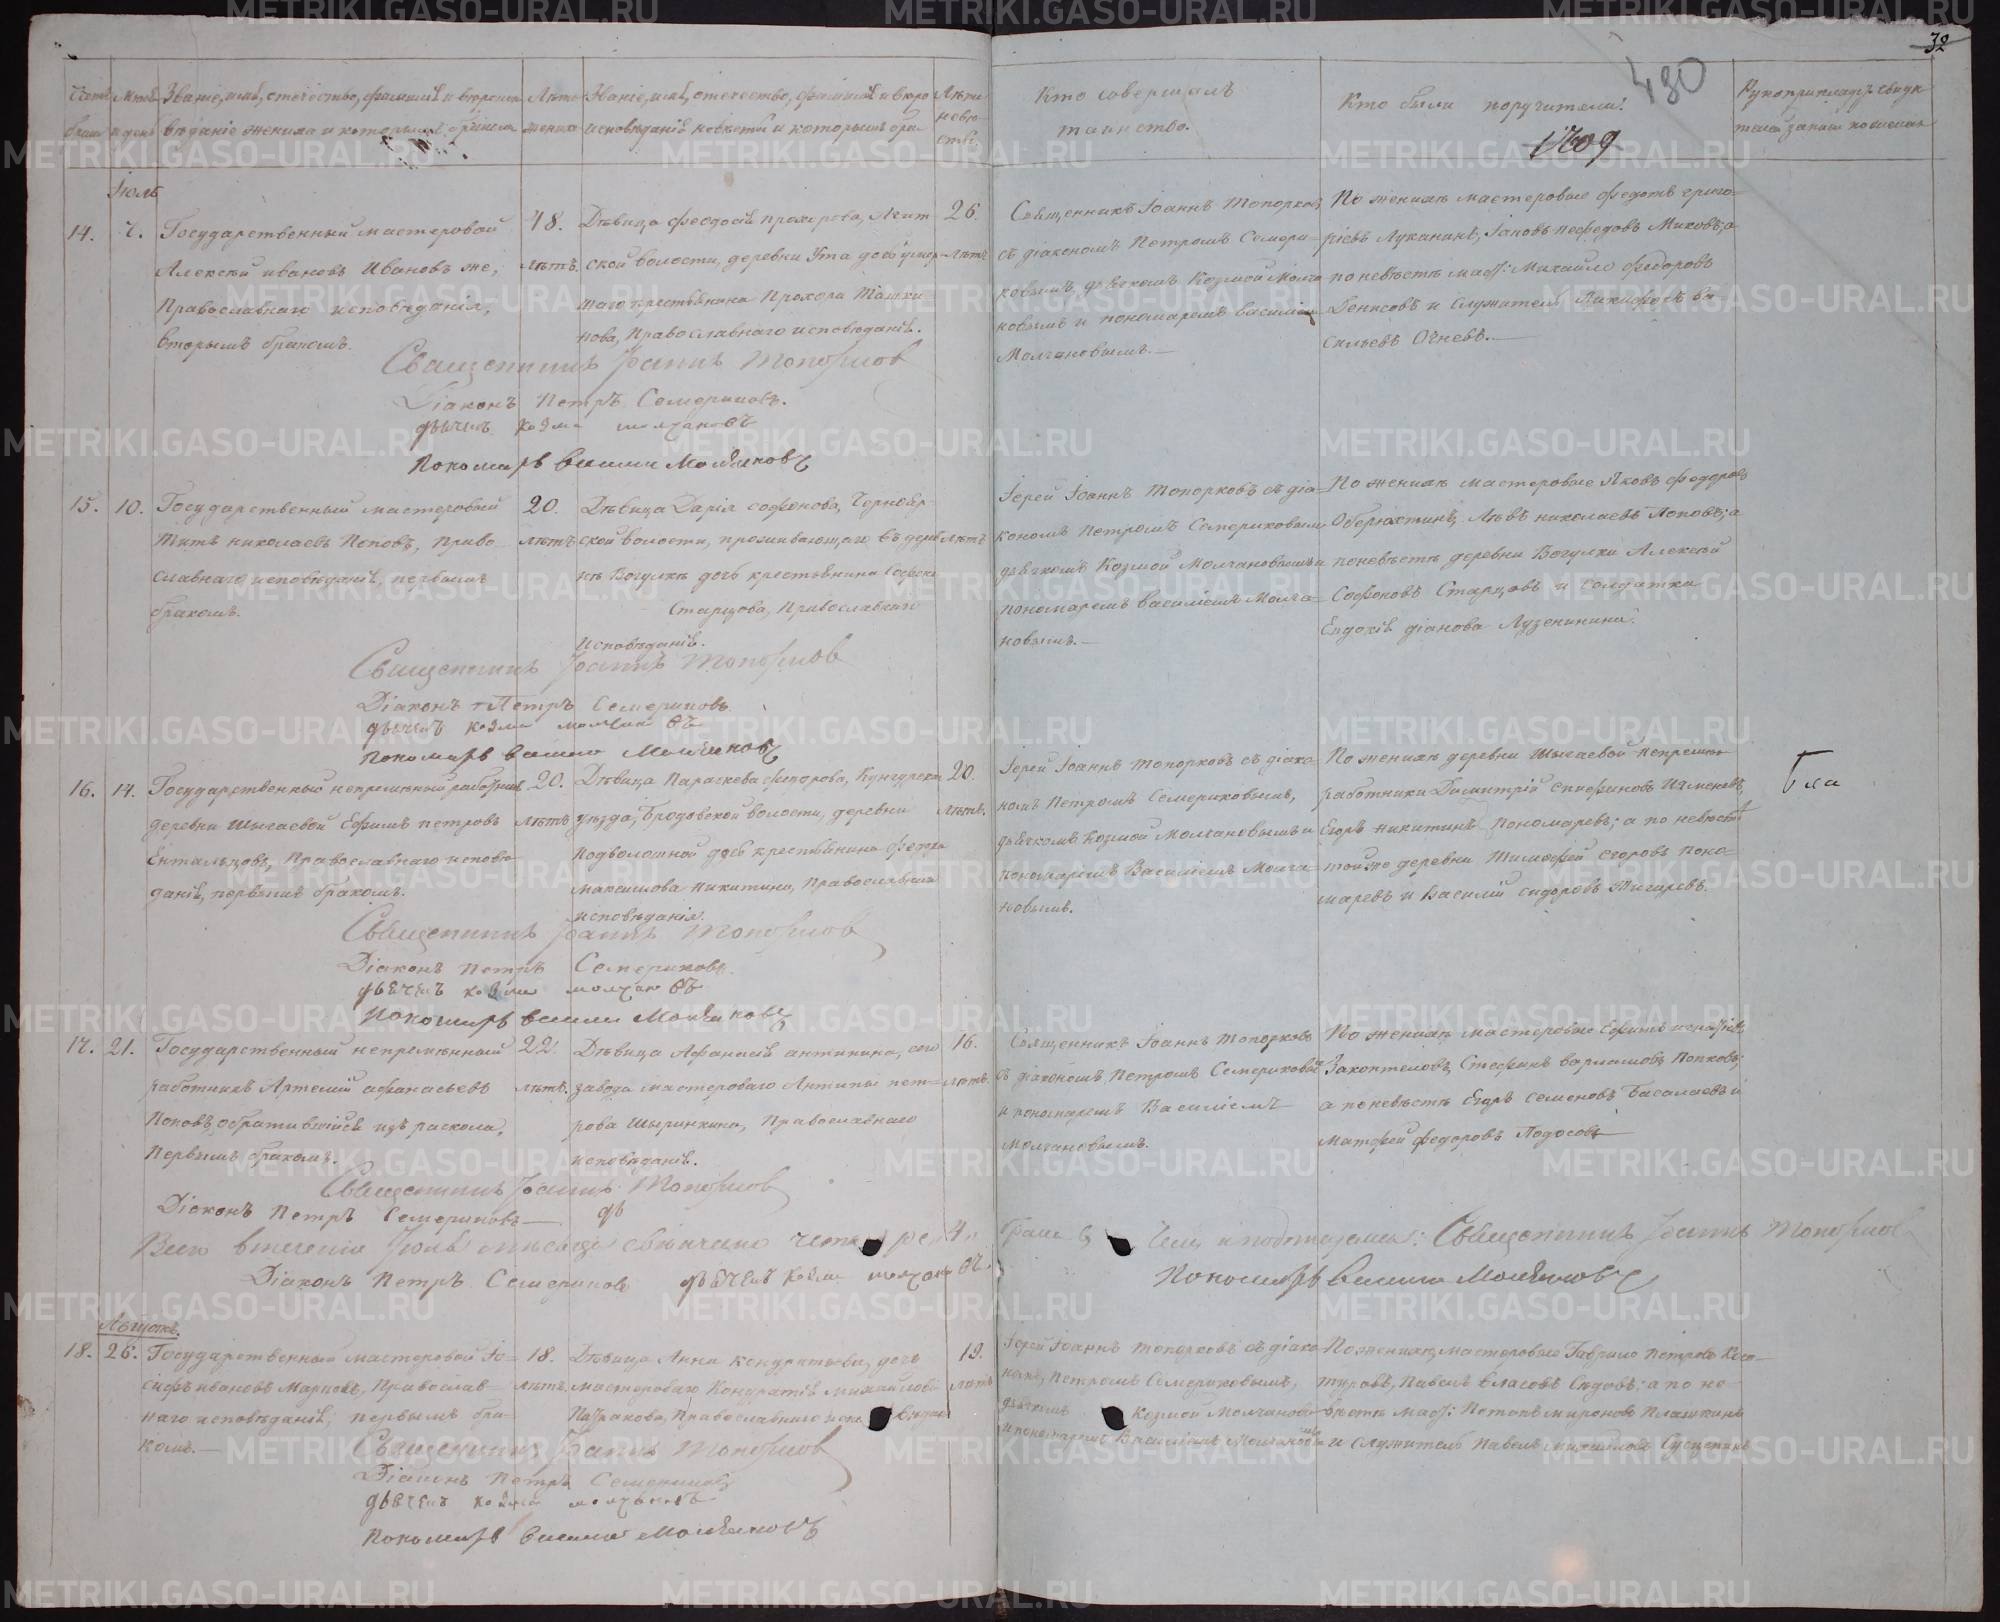 32
480
1709
Счетъ браковъ
Мѣсяцъ и день
Званіе, имя, отечество, фамилія и вѣроисповѣданіе жениха и которымъ бракомъ
Лѣта жениха
Званіе, имя, отечество, фамилія и вѣроисповѣданіе невѣсты и которымъ бракомъ
Лѣта невѣсты
Кто совершалъ
таинство.
Кто были поручители?
Іюль
14. 7. Государственный мастеровой
Алексѣй Ивановъ Ивановъ же,
Православнаго исповѣданія,
вторымъ бракомъ.
48.
лѣтъ.
Дѣвица Феодосія Прохорова,
ской волости, деревни Ута дочь умер-
шаго крестьянина Прохора
нова, Православнаго исповѣданія.
26.
лѣтъ
Священникъ Іоаннъ Топорковъ
съ діакономъ Петромъ Семери-
ковымъ, дьячкомъ Козмой Молча-
новымъ и пономаремъ Василіемъ
Молчановымъ.
По женихѣ мастеровые Федотъ Григо-
рьевъ Луканинъ, Іаковъ Нефедовъ Миковъ; а
по невѣстѣ маст: Михайло Федоровъ
Денисовъ и служитель Никифоръ Ва-
сильевъ Огневъ.
Священникъ Іоаннъ Топорковъ
Діаконъ Петръ Семериковъ.
дьячекъ Козма Молчановъ
Пономарь Василій Молчановъ
15. 10. Государственный мастеровый
Титъ Николаевъ Поповъ, Право-
славнаго исповѣданія, первымъ
бракомъ.
20.
лѣтъ
Дѣвица Дарія Софонова,
ской волости, проживающаго въ дерев-
нѣ Вогулкѣ дочь крестьянина Софона
Старцова, Православнаго
исповѣданія.
лѣтъ
Іерей Іоаннъ Топорковъ съ діа-
кономъ Петромъ Семериковымъ
дьячкомъ Козмой Молчановымъ и
пономаремъ Василіемъ Молча-
новымъ.
По женихѣ мастеровые Яковъ Федоровъ
Оберюхтинъ, Левъ Николаевъ Поповъ; а
по невѣстѣ деревни Вогулки Алексѣй
Софоновъ Старцовъ и солдатка
Евдокія
Священникъ Іоаннъ Топорковъ
Діаконъ Петръ Семериковъ
дьячекъ Козма Молчановъ
Пономарь Василій Молчановъ
16. 14. Государственный непремѣнный работникъ
деревни Шигаевой Ефимъ Петровъ
Ентальцовъ, Православнаго исповѣ-
данія, первымъ бракомъ.
20.
лѣтъ
Дѣвица Параскева Федорова, Кунгурскаго
уѣзда, Бродовской волости, деревни
Подволошной дочь крестьянина Федора
Максимова Никитина, Православнаго
исповѣданія.
20.
лѣтъ.
Іерей Іоаннъ Топорковъ съ діако-
номъ Петромъ Семериковымъ,
дьячкомъ Козмой Молчановымъ и
пономаремъ Василіемъ Молча-
новымъ.
По женихѣ деревни Шигаевой непремѣн-
работники Димитрій Епифановъ
Егоръ Никитинъ Пономаревъ; а по невѣстѣ
той же деревни Тимофей Егоровъ Поно-
маревъ и Василій Сидоровъ
Священникъ Іоаннъ Топорковъ
Діаконъ Петръ Семериковъ.
дьячекъ Козма Молчановъ
Пономарь Василій Молчановъ
17. 21. Государственный непремѣнный
работникъ Артемій Афанасьевъ
Поповъ, обратившійся изъ раскола,
первымъ бракомъ.
22.
лѣтъ.
Дѣвица Афанасія Антипина, сего
завода мастероваго Антипы Пет-
рова Ширинкина, Православнаго
исповѣданія.
16.
лѣтъ.
Священникъ Іоаннъ Топорковъ
съ діакономъ Петромъ Семериковымъ
и пономаремъ Василіемъ
Молчановымъ.
По женихѣ мастеровые Ефимъ
Закоптеловъ, Стефанъ Варламовъ Попковъ;
а по невѣстѣ Егоръ Семеновъ Басалаевъ и
Матфей Федоровъ Подосовъ
Священникъ Іоаннъ Топорковъ
Діаконъ Петръ Семериковъ
Всего въ теченіи Іюля мѣсяца свѣнчано четыре 4
брака въ чемъ и подписуемся: Священникъ Іоаннъ Топорковъ
Діаконъ Петръ Семериковъ дьячекъ Козма Молчановъ
Пономарь Василій Молчановъ
Августъ.
18. 26. Государственный мастеровой Іо-
сифъ Ивановъ Марковъ, Православ-
наго исповѣданія; первымъ бра-
комъ.
18.
лѣтъ
Дѣвица Анна Кондратьева, дочь
мастероваго Кондратія Михайлова
Патракова, Православнаго исповѣданія
19.
лѣтъ
Іерей Іоаннъ Топорковъ съ діако-
номъ, Петромъ Семериковымъ,
дьячкомъ Козмой Молчановы-
и пономаремъ Василіемъ Молчановымъ
По женихѣ, мастеровые Гаврило Петровъ
Павелъ Власовъ Сѣдовъ; а по не-
вѣстѣ маст: Потапъ Мироновъ Плашкинъ
и служитель Павелъ Михайловъ
Священникъ Іоаннъ Топорковъ
Діаконъ Петръ Семериковъ
дьячекъ Козма Молчановъ
Пономарь Василій Молчановъ
METRIKI.GASO-URAL.RU